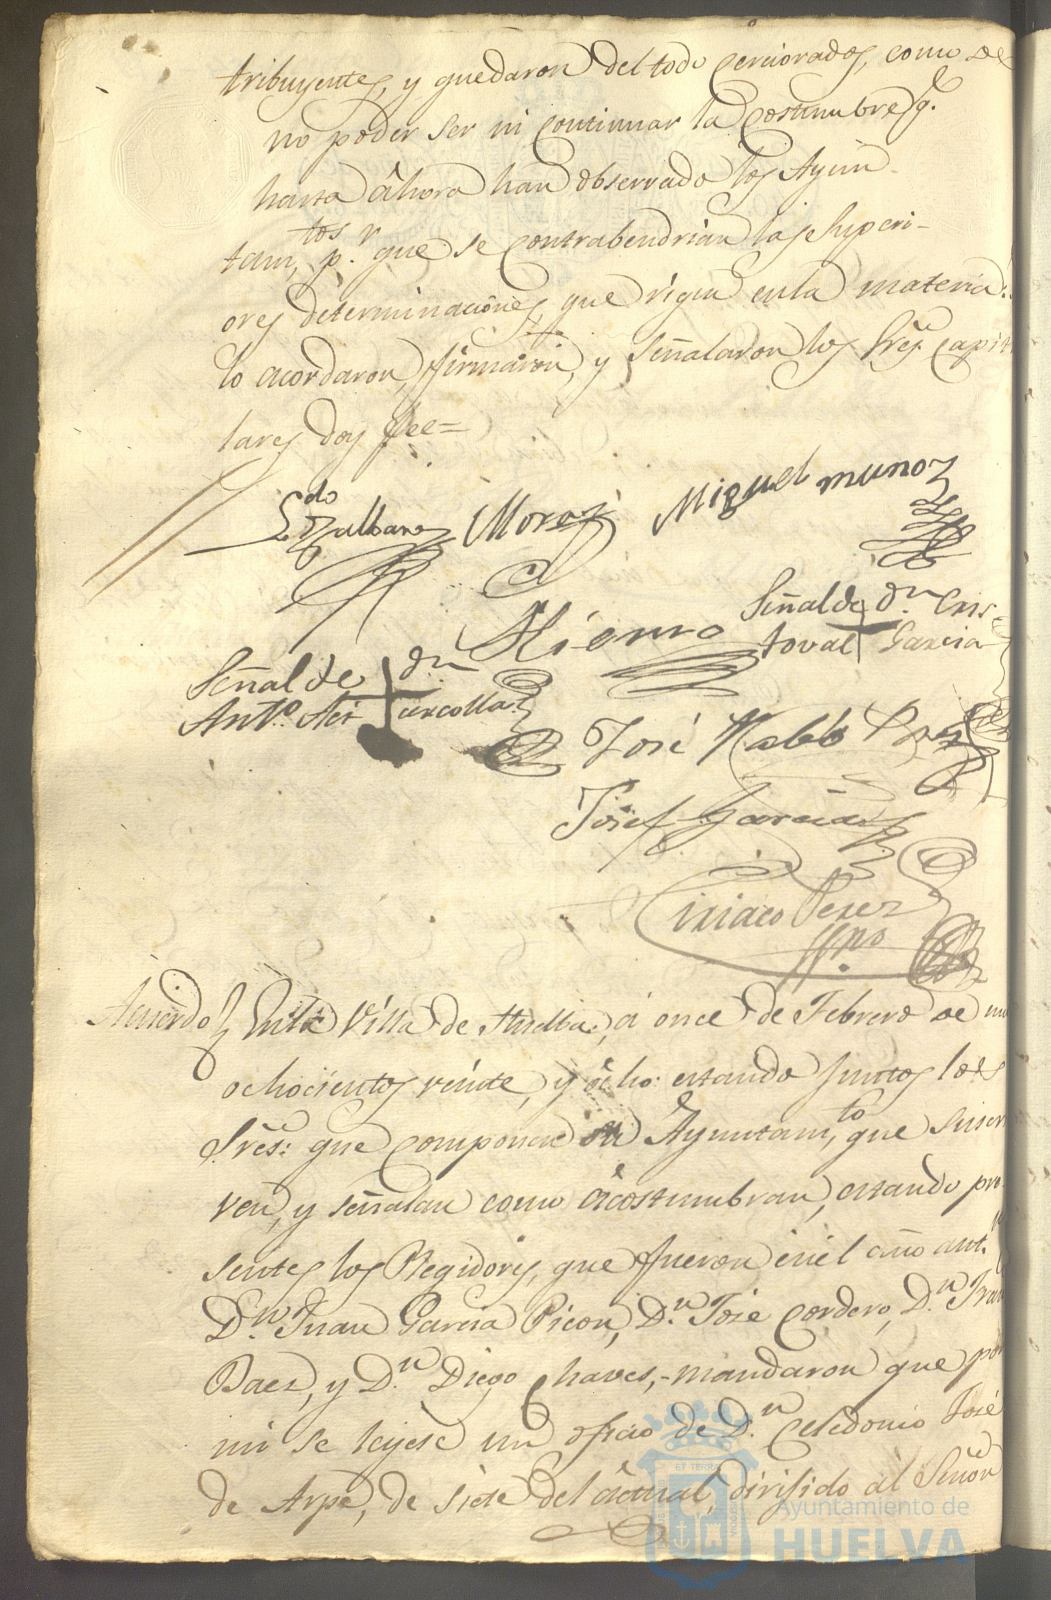 tribuyentes, y quedaron del todo cerciorados, como de
no poder ser ni continuar la costumbre q.e
hasta ahora han observado los Ayun-
tam.tos p.r que se contrabendrian las Superi-
ores determinaciones, que rigen en la materia:
lo acordaron, firmaron, y señalaron los Sres. capitu
lares doy fee=
L.do Moras Miguel munoz
Hierro
Señal de d.n Cris-
toval Garcia
Señal de d.n
Ant.o
José
Josef Garcia
Ciriaco Perez
Acuerdo En la Villa de Huelba, a once de Febrero de mil
ochocientos veinte, y ocho: estando juntos los
Sres: que componen su Ayuntam.to, que suscri
ven, y señalan como acostumbran, estando pre
sentes los Regidores, que fueron en el año ant.r
D.n Juan Garcia Picon, D.n José Cordero, D.n Fran
Baez, y D.n Diego Chaves,- mandaron que por
mi se leyese un oficio de D.n Celedonio José
de Arpe, de siete del actual, dirijido al Señor
ET TERRA
Ayuntamiento de
HUELVA